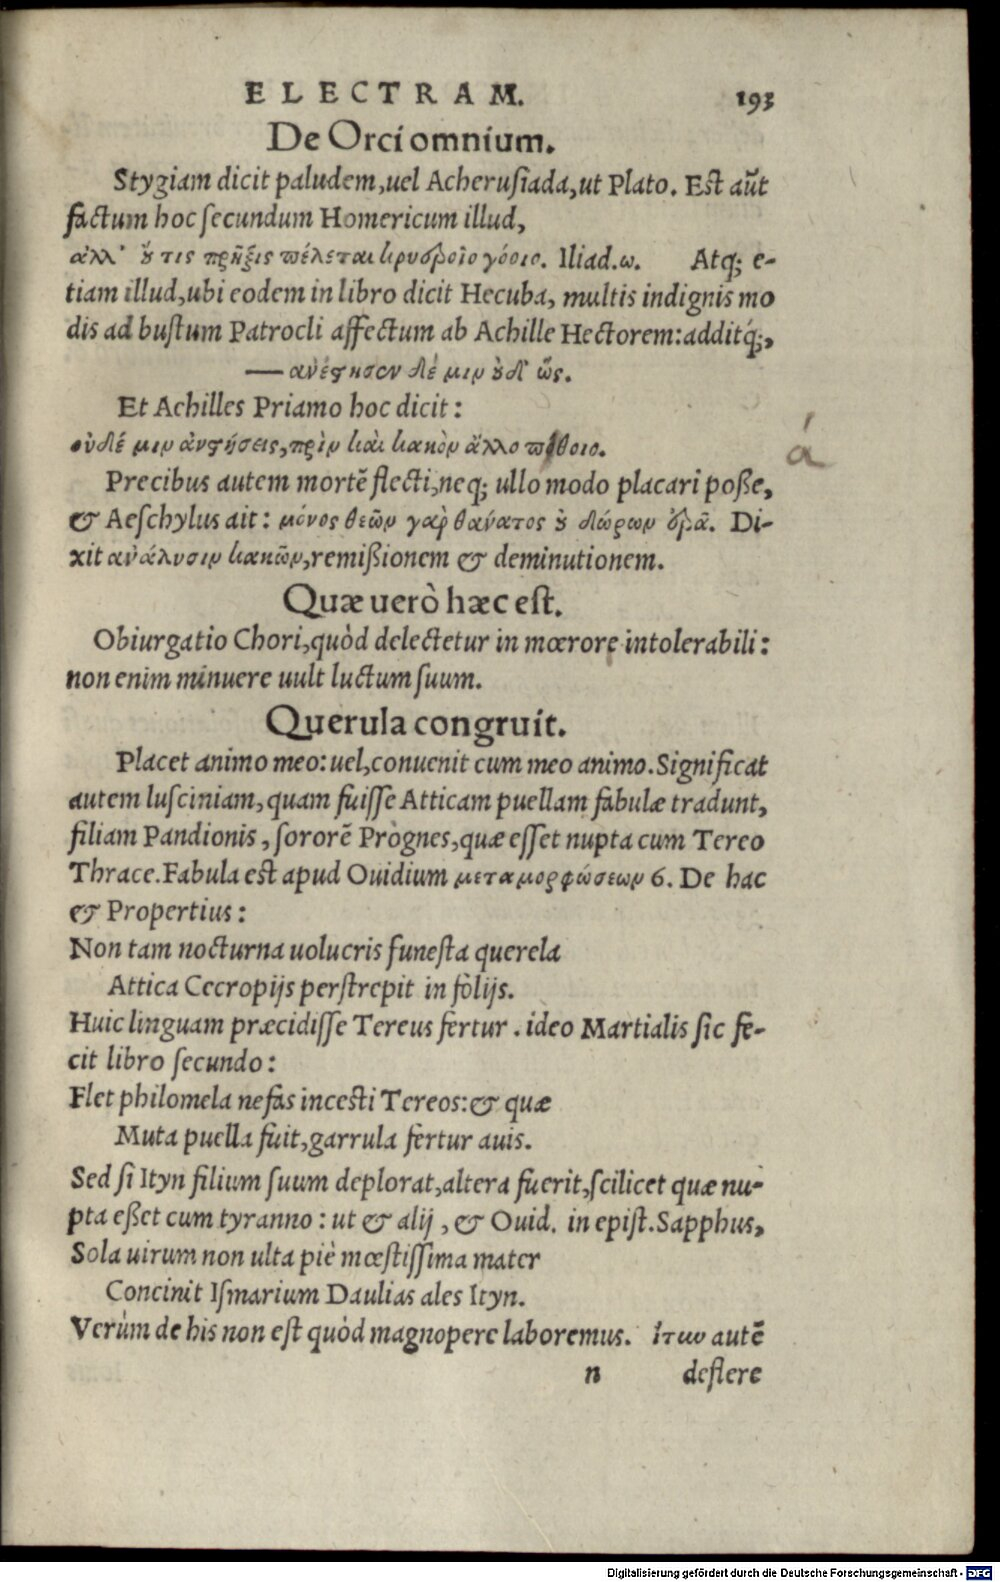 ELECTRAM. 193
De Orci omnium.
Stygiam dicit paludem, uel Acherusiada, ut Plato. Est aūt
factum hoc secundum Homericum illud,
ἀλλ' ȣ̓ τις πρῆξις πέλεται κρυεροῖο γόοιο. Iliad. ω. Atq; e-
tiam illud, ubi eodem in libro dicit Hecuba, multis indignis mo
dis ad bustum Patrocli affectum ab Achille Hectorem: additq́;,
— ἀνέστησεν δέ μιν ȣ̓δ' ὧς.
Et Achilles Priamo hoc dicit:
οὐδέ μιν ἀνστήσεις, πρὶν καὶ κακὸν ἄλλο πάθοιο.
á
Precibus autem mortē flecti, neq; ullo modo placari poße,
& Aeschylus ait: μόνος θεῶν γαρ θάνατος ȣ̓ δώρων ἐρᾶ. Di-
xit ἀνάλυσιν κακῶν, remißionem & deminutionem.
Quæ uerò hæc est.
Obiurgatio Chori, quòd delectetur in mœrore intolerabili:
non enim minuere uult luctum suum.
Querula congruit.
Placet animo meo: uel, conuenit cum meo animo. Significat
autem lusciniam, quam fuisse Atticam puellam fabulæ tradunt,
filiam Pandionis, sororē Prògnes, quæ esset nupta cum Tereo
Thrace. Fabula est apud Ouidium μεταμορφώσεων 6. De hac
& Propertius:
Non tam nocturna uolucris funesta querela
Attica Cecropijs perstrepit in fòlijs.
Huic linguam præcidisse Tereus fertur. ideo Martialis sic fe-
cit libro secundo:
Flet philomela nefas incesti Tereos: & quæ
Muta puella fuit, garrula fertur auis.
Sed si Ityn filium suum deplorat, altera fuerit, scilicet quæ nu-
pta eßet cum tyranno: ut & alij, & Ouid. in epist. Sapphus,
Sola uirum non ulta piè mœstissima mater
Concinit Ismarium Daulias ales Ityn.
Verùm de his non est quòd magnopere laboremus. ἴτων autē
n deflere
Digitalisierung gefördert durch die Deutsche Forschungsgemeinschaft - DFG